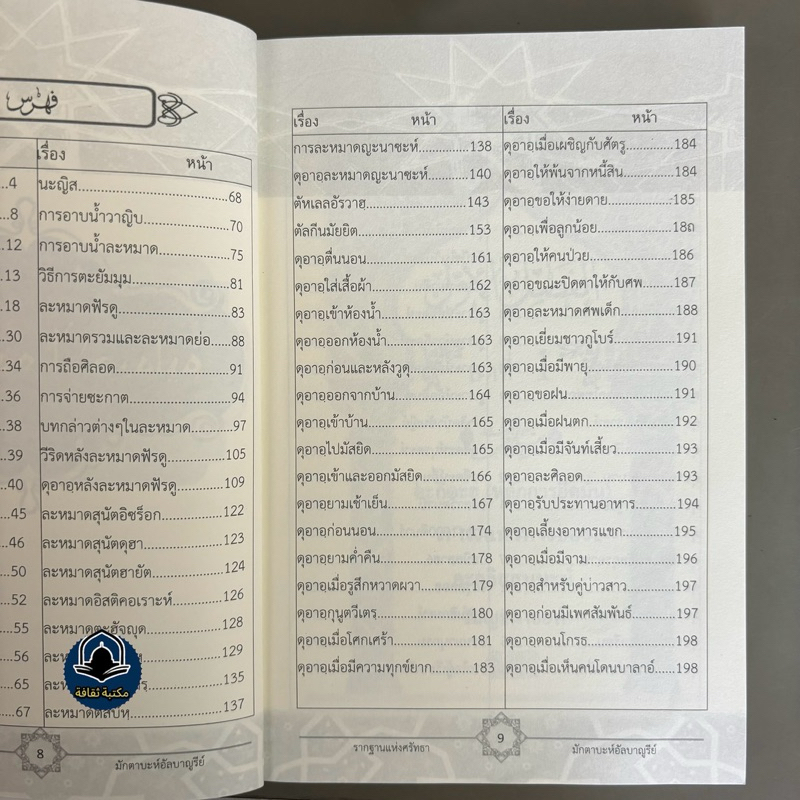 فهرس
เรื่อง หน้า
...4 นะญิส.....68
...8 การอาบน้ำวาญิบ.....70
...12 การอาบน้ำละหมาด.....75
...13 วิธีการตะยัมมุม.....81
...18 ละหมาดฟัรดู.....83
...30 ละหมาดรวมและละหมาดย่อ.....88
...34 การถือศิลอด.....91
...36 การจ่ายซะกาต.....94
...38 บทกล่าวต่างๆในละหมาด.....97
...39 วีริดหลังละหมาดฟัรดู.....105
...40 ดุอาอฺหลังละหมาดฟัรดู.....109
...45 ละหมาดสุนัตอิชร็อก.....122
...46 ละหมาดสุนัตดุฮา.....123
...50 ละหมาดสุนัตฮายัต.....124
...52 ละหมาดอิสติคอเราะห์.....126
...55 ละหมาดตะฮัจญุด.....128
...56 .....129
...65 .....135
...67 ละหมาดตัสบีห.....137
مكتبة ثقافة
8 มักตาบะห์อัลบาญูรีย์
เรื่อง หน้า
การละหมาดญะนาซะห์.....138
ดุอาอฺละหมาดญะนาซะห์.....140
ตัหเลลอัรวาฮฺ.....143
ตัลกีนมัยยิต.....153
ดุอาอฺตื่นนอน.....161
ดุอาอฺใส่เสื้อผ้า.....162
ดุอาอฺเข้าห้องน้ำ.....163
ดุอาอฺออกห้องน้ำ.....163
ดุอาอฺก่อนและหลังวูดุ.....163
ดุอาอฺออกจากบ้าน.....164
ดุอาอฺเข้าบ้าน.....165
ดุอาอฺไปมัสยิด.....165
ดุอาอฺเข้าและออกมัสยิด.....166
ดุอาอฺยามเช้าเย็น.....167
ดุอาอฺก่อนนอน.....174
ดุอาอฺยามค่ำคืน.....178
ดุอาอฺเมื่อรูสึกหวาดผวา.....179
ดุอาอฺกุนูตวีเตรฺ.....180
ดุอาอฺเมื่อโศกเศร้า.....181
ดุอาอฺเมื่อมีความทุกข์ยาก.....183
เรื่อง หน้า
ดุอาอฺเมื่อเผชิญกับศัตรู.....184
ดุอาอฺให้พ้นจากหนี้สิน.....184
ดุอาอฺขอให้ง่ายดาย.....185
ดุอาอฺเพื่อลูกน้อย.....18ถ
ดุอาอฺให้คนป่วย.....186
ดุอาอฺขณะปิดตาให้กับศพ.....187
ดุอาอฺละหมาดศพเด็ก.....188
ดุอาอฺเยี่ยมชาวกูโบร์.....191
ดุอาอฺเมื่อมีพายุ.....190
ดุอาอฺขอฝน.....191
ดุอาอฺเมื่อฝนตก.....192
ดุอาอฺเมื่อมีจันท์เสี้ยว.....193
ดุอาอฺละศิลอด.....193
ดุอาอฺรับประทานอาหาร.....194
ดุอาอฺเลี้ยงอาหารแขก.....195
ดุอาอฺเมื่อมีจาม.....196
ดุอาอฺสำหรับคู่บ่าวสาว.....197
ดุอาอฺก่อนมีเพศสัมพันธ์.....197
ดุอาอฺตอนโกรธ.....198
ดุอาอฺเมื่อเห็นคนโดนบาลาอ์.....198
รากฐานแห่งศรัทธา 9 มักตาบะห์อัลบาญูรีย์